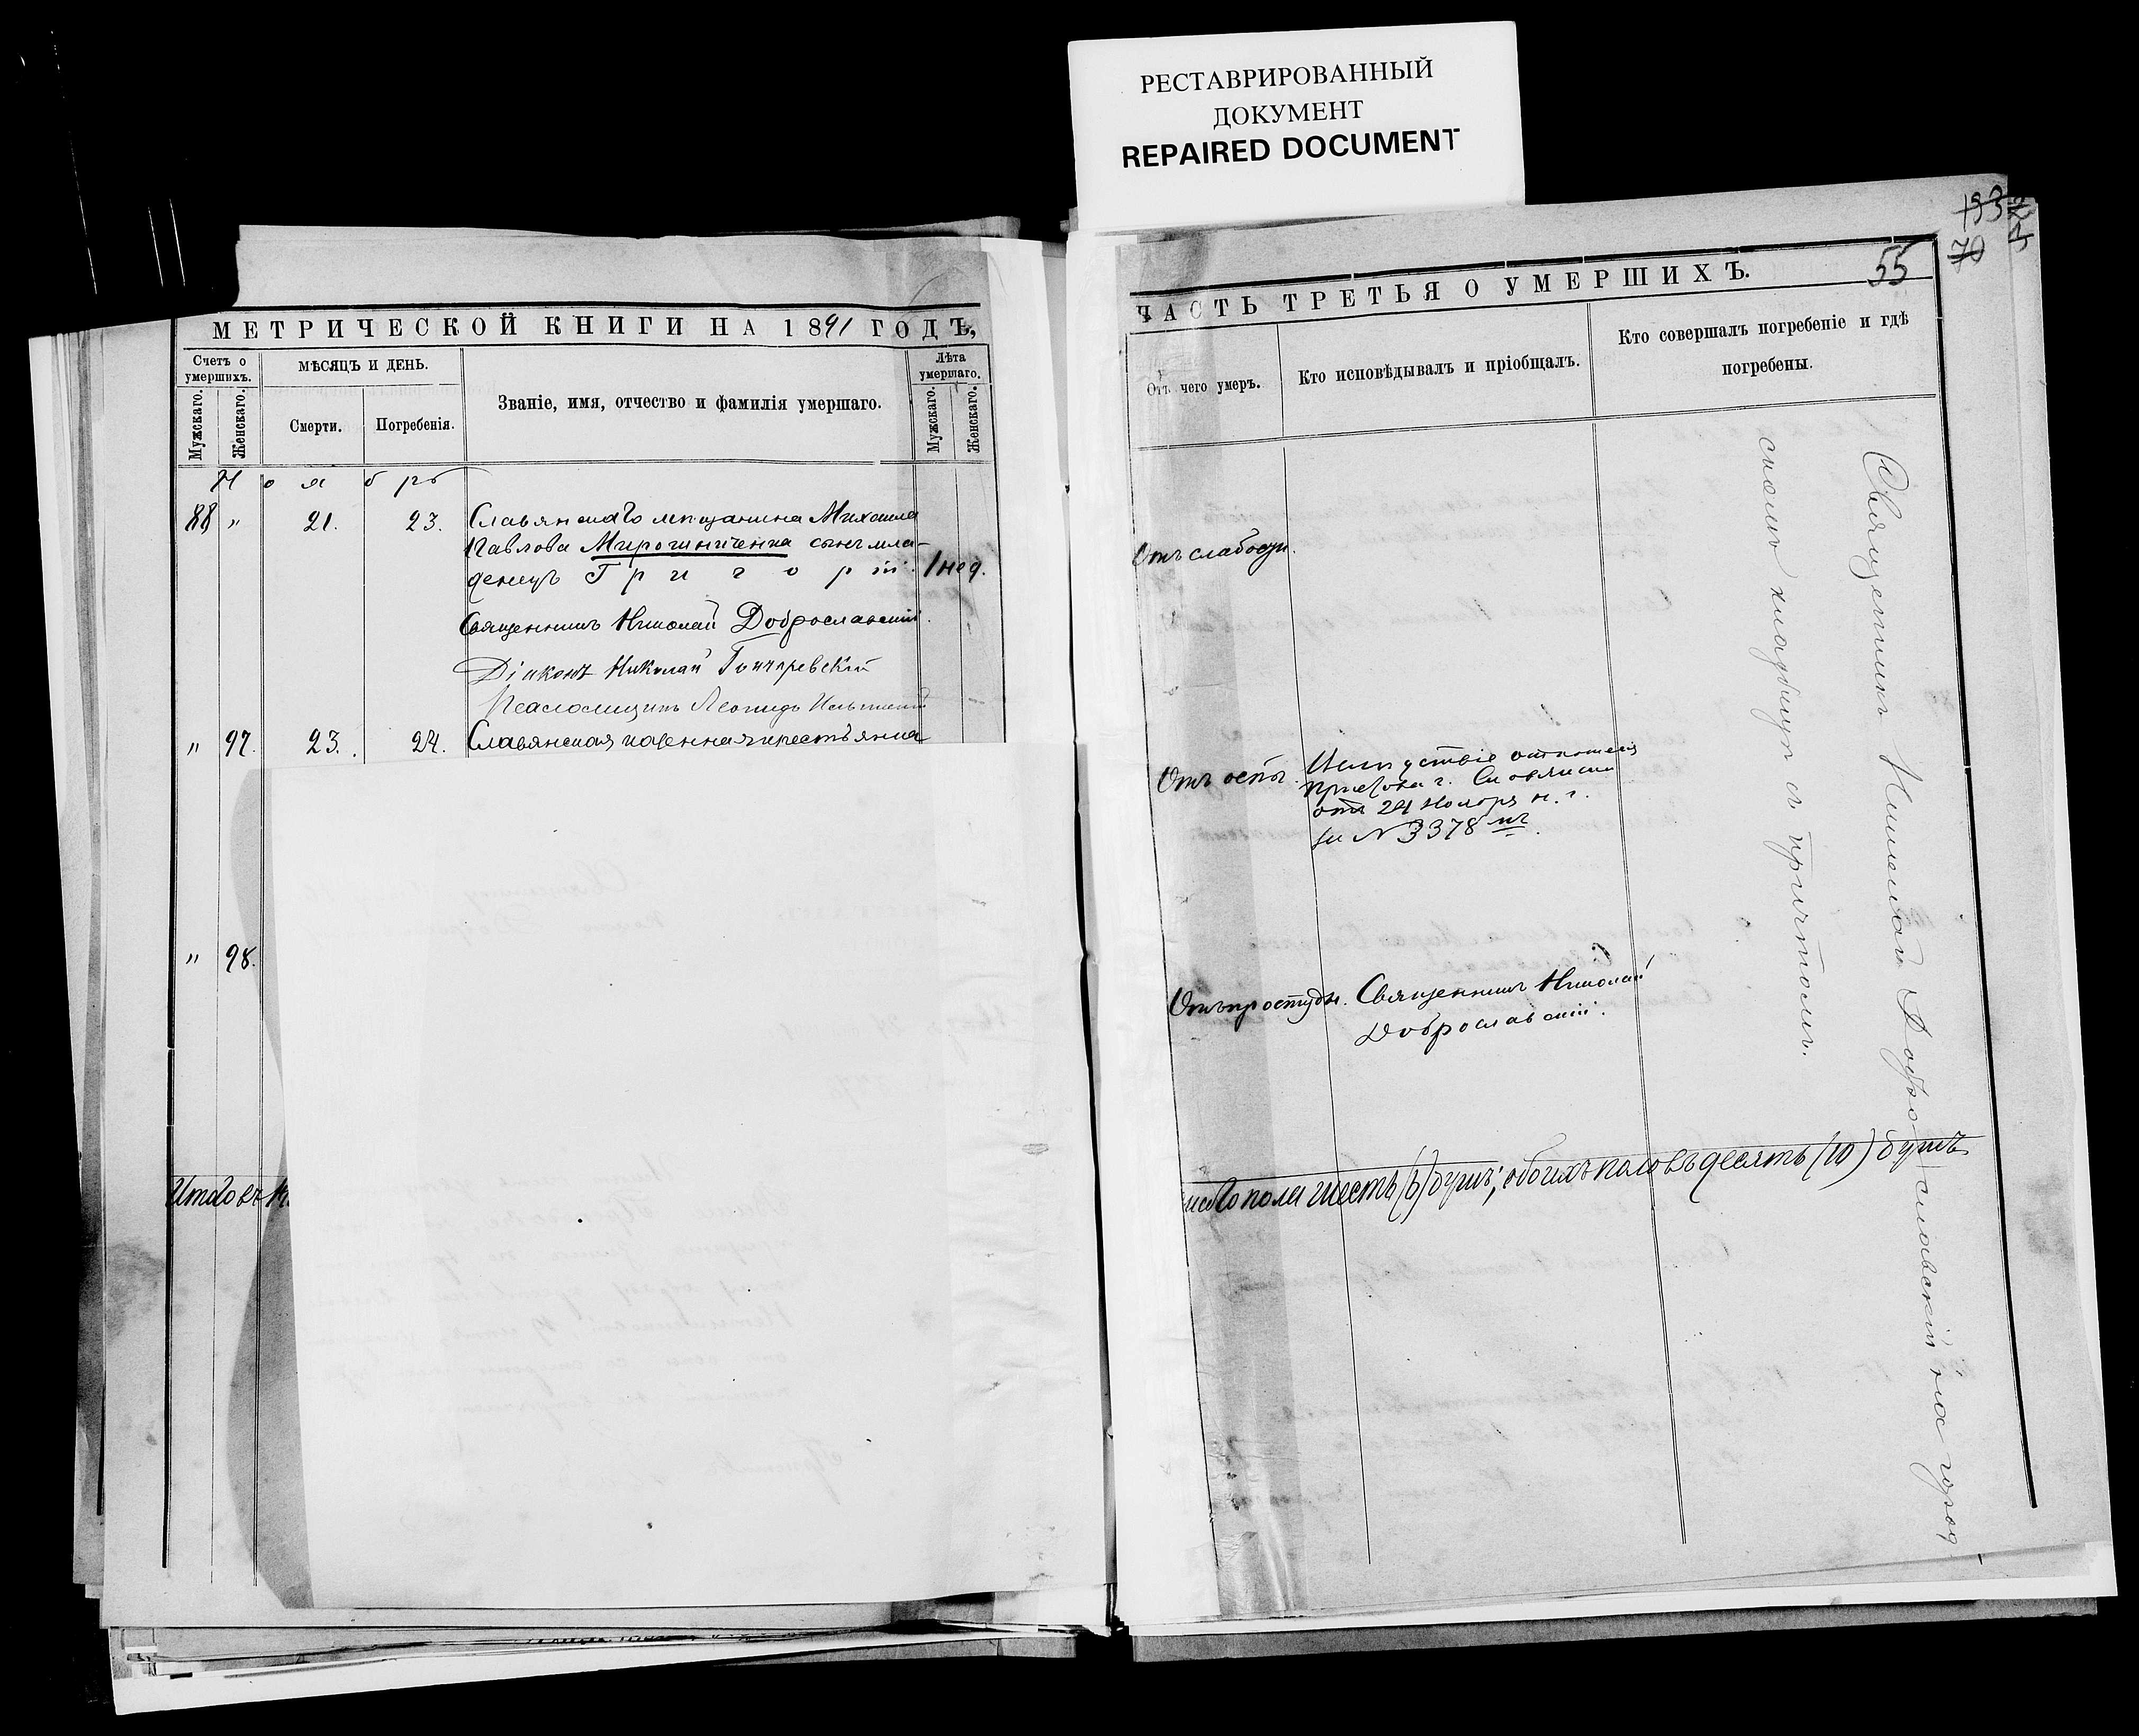 РЕСТАВРИРОВАННЫЙ
ДОКУМЕНТ
REPAIRED DOCUMENT
МЕТРИЧЕСКОЙ КНИГИ НА 1891 ГОДЪ,
Счетъ о умершихъ.
МѢСЯЦЪ И ДЕНЬ.
Званіе, имя, отчество и фамилія умершаго.
Лѣта умершаго.
Мужскаго.
Женскаго.
Смерти.
Погребенія.
Мужскаго.
Женскаго.
Ноябрь
88 " 21. 23. Славянскаго мѣщанина Михаила
Павлова Мирошниченка сынъ мла-
денецъ Григорій. 1 нед.
Священникъ Николай Доброславскій.
Діаконъ Николай Гончаревскій
Псаломщикъ Леонидъ
" 97. 23. 24. Славянская казенная крестьянка
" 98.
Итого въ
133
70
55
ЧАСТЬ ТРЕТЬЯ О УМЕРШИХЪ.
Отъ чего умеръ.
Кто исповѣдывалъ и пріобщалъ.
Кто совершалъ погребеніе и гдѣ
погребены.
Отъ слабости.
Отъ оспы.
отношенія
г. Славянска
отъ 24 Ноября н. г.
за N 3378
Отъ простуды. Священникъ Николай
Доброславскій.
Священникъ Николай Доброславскій на город
скомъ кладбищѣ съ причтомъ.
пола шесть (6) душъ, обоихъ половъ десять (10) душъ